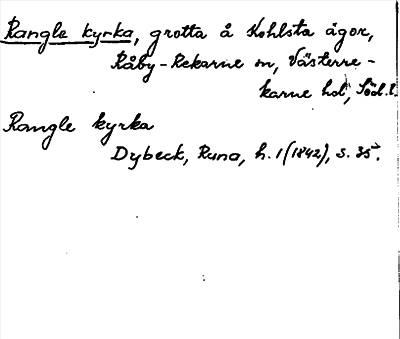 Rangle kyrka, grotta å Kohlsta ägor,
Råby-Rekarne sn, Västerre-
karne hd, Söd.l.
Rangle kyrka
Dybeck, Runa, h. 1 (1842), s. 35.